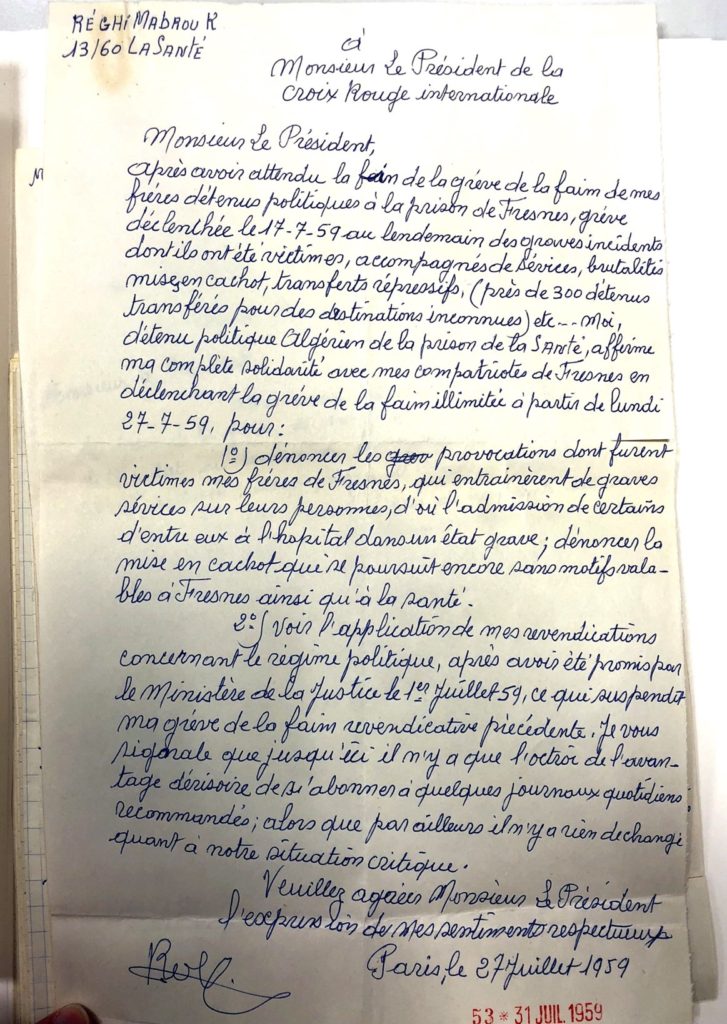 RÉGHI MABROUK
13/60 LA SANTÉ
à
Monsieur Le Président de la
Croix Rouge internationale
Monsieur Le Président,
après avoir attendu la fain de la gréve de la faim de mes
fréres détenus politiques à la prison de Fresnes, gréve
déclenchée le 17-7-59 au lendemain des graves incidents
dont ils ont été victimes, accompagnés de sévices, brutalités
mise en cachot, transferts répressifs, (près de 300 détenus
transférés pour des destinations inconnues) etc--- Moi,
détenu politique Algérien de la prison de la SANTé, affirme
ma complète solidarité avec mes compatriotes de Fresnes en
déclenchant la gréve de la faim illimitée à partir de lundi
27-7-59, pour:
1º) dénoncer les provocations dont furent
victimes mes fréres de Fresnes, qui entrainèrent de graves
sévices sur leurs personnes, d'où l'admission de certains
d'entre eux à l'hopital dans un état grave; dénoncer la
mise en cachot qui se poursuit encore sans motifs vala-
bles à Fresnes ainsi qu'à la santé.
2º) Voir l'application de mes revendications
concernant le régime politique, après avoir été promis par
le Ministère de la Justice le 1er Juillet 59, ce qui suspendit
ma gréve de la faim revendicative précédente. Je vous
signale que jusqu'ici il n'y a que l'octroi de l'avan-
tage dérisoire de s'abonner à quelques journaux quotidiens
recommandés; alors que par ailleurs il n'y a rien de changé
quant à notre situation critique.
Veuillez agréer Monsieur Le Président
l'expression de mes sentiments respectueux
Paris, le 27 Juillet 1959
53 * 31 JUIL. 1959